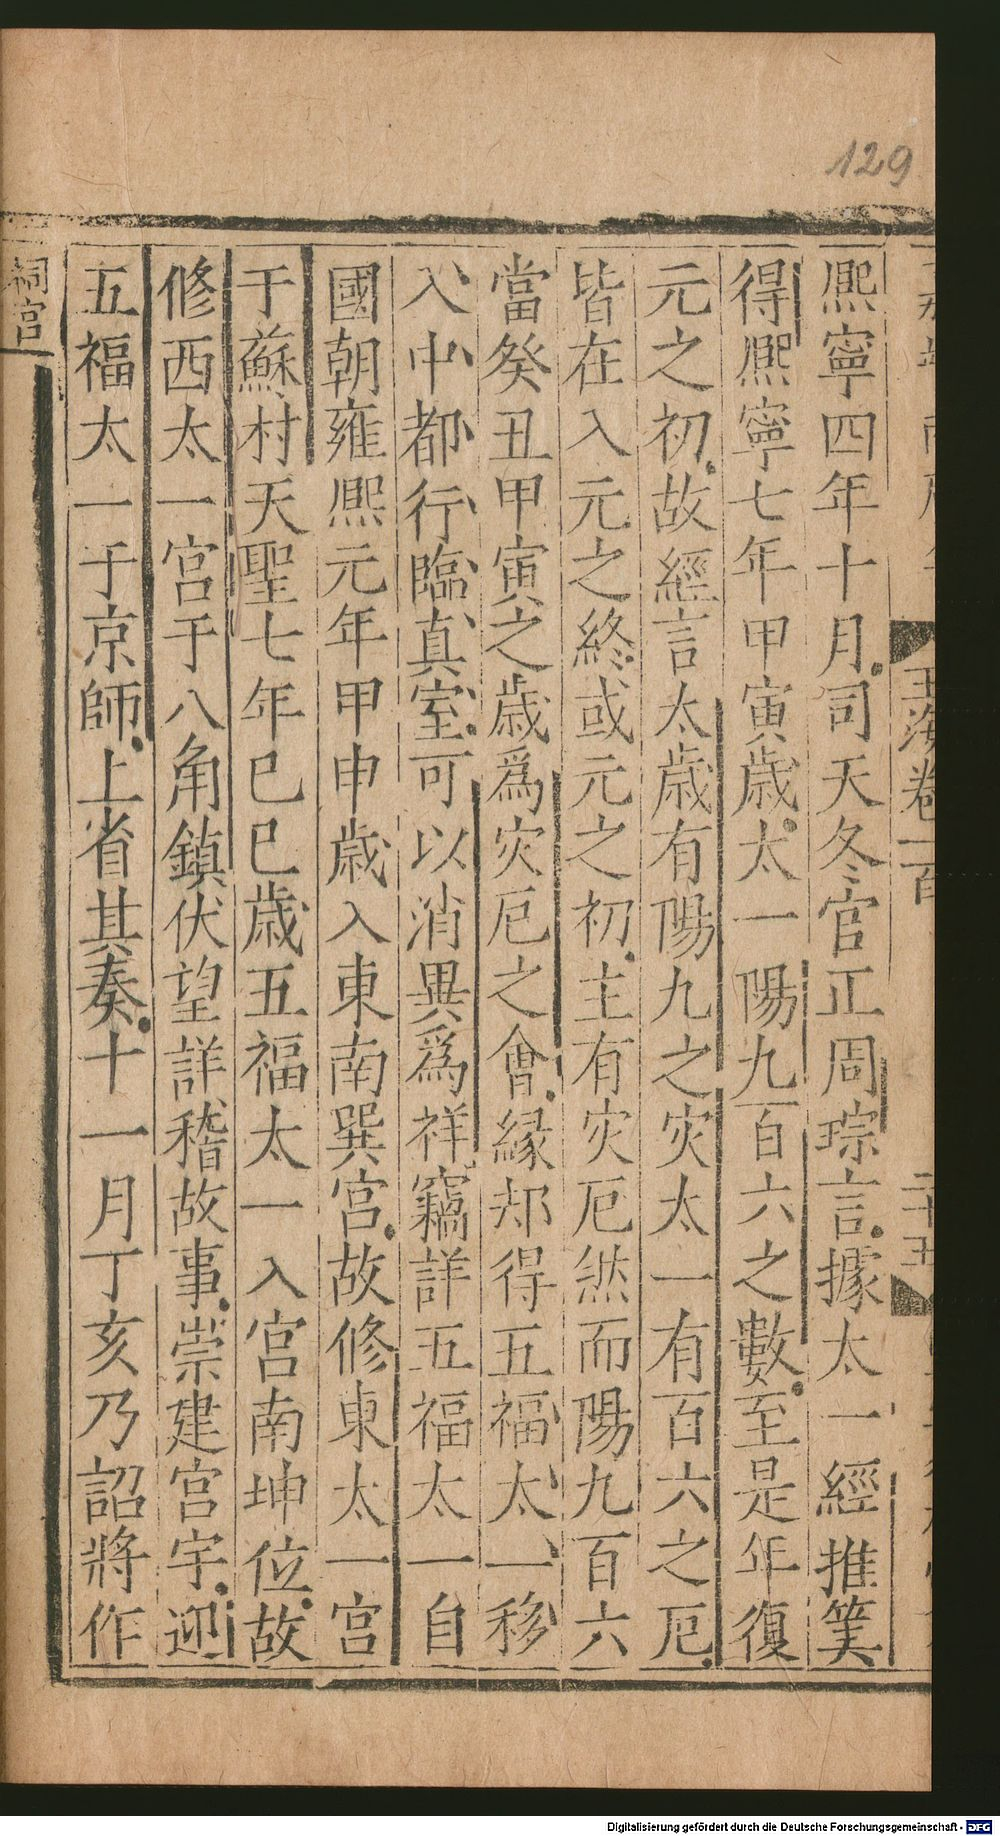 129
玉海卷一百
二十五
熈寧四年十月司天冬官正周琮言據太一經推筭
得熈寧七年甲寅歲太一陽九百六之數至是年復
元之初故經言太歲有陽九之灾太一有百六之厄
皆在入元之終或元之初主有灾厄然而陽九百六
當癸丑甲寅之歲爲灾厄之會縁却得五福太一移
入中都行臨真室可以消異爲祥竊詳五福太一自
國朝雍熈元年甲申歲入東南巽宮故修東太一宮
于蘇村天聖七年巳巳歲五福太一入宮南坤位故
修西太一宮于八角鎮伏望詳稽故事崇建宮宇迎
五福太一于京師上省其奏十一月丁亥乃詔將作
祠宮
Digitalisierung gefördert durch die Deutsche Forschungsgemeinschaft - DFG